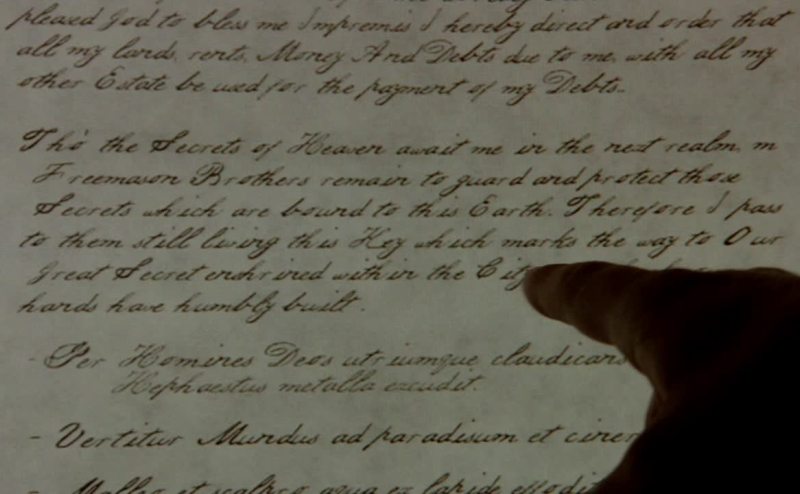 pleased God to bless me Impremis I hereby direct and order that
all my lands, rents, Money And Debts due to me, with all my
other Estate be used for the payment of my Debts..
Tho' the Secrets of Heaven await me in the next realm, m
Freemason Brothers remain to guard and protect those
Secrets which are bound to this Earth. Therefore I pass
to them still living this Key which marks the way to Our
Great Secret enshrined within the City
hands have humbly built.
- Per Homines Deos utriumque claudicans
Hephaestus metalla excudit.
- Vertitur Mundus ad paradisum et ciner
- Malleo et scalpro aqua ex lapide effodit